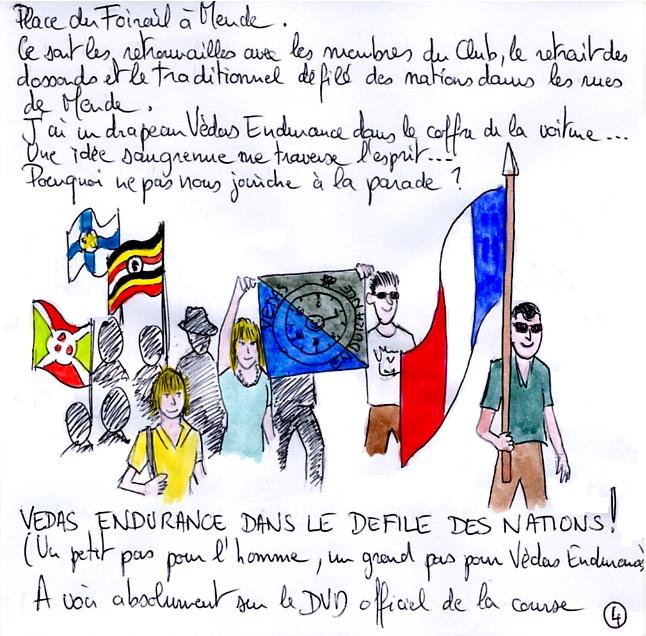 Place du Foirail à Mende.
Ce sont les retrouvailles avec les membres du Club, le retrait des
dossards et le traditionnel défilé des nations dans les rues
de Mende.
J'ai un drapeau Vèdas Endurance dans le coffre de la voiture...
Une idée saugrenue me traverse l'esprit...
Pourquoi ne pas nous joindre à la parade ?
VEDAS
ENDURANCE
VEDAS ENDURANCE DANS LE DEFILE DES NATIONS!
(Un petit pas pour l'homme, un grand pas pour Vèdas Endurance)
A voir absolument sur le DVD officiel de la course
4